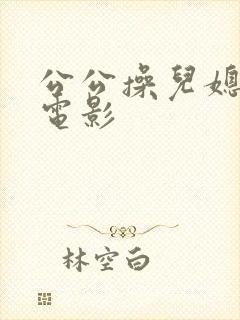 公公操兒媳
電影
林空白